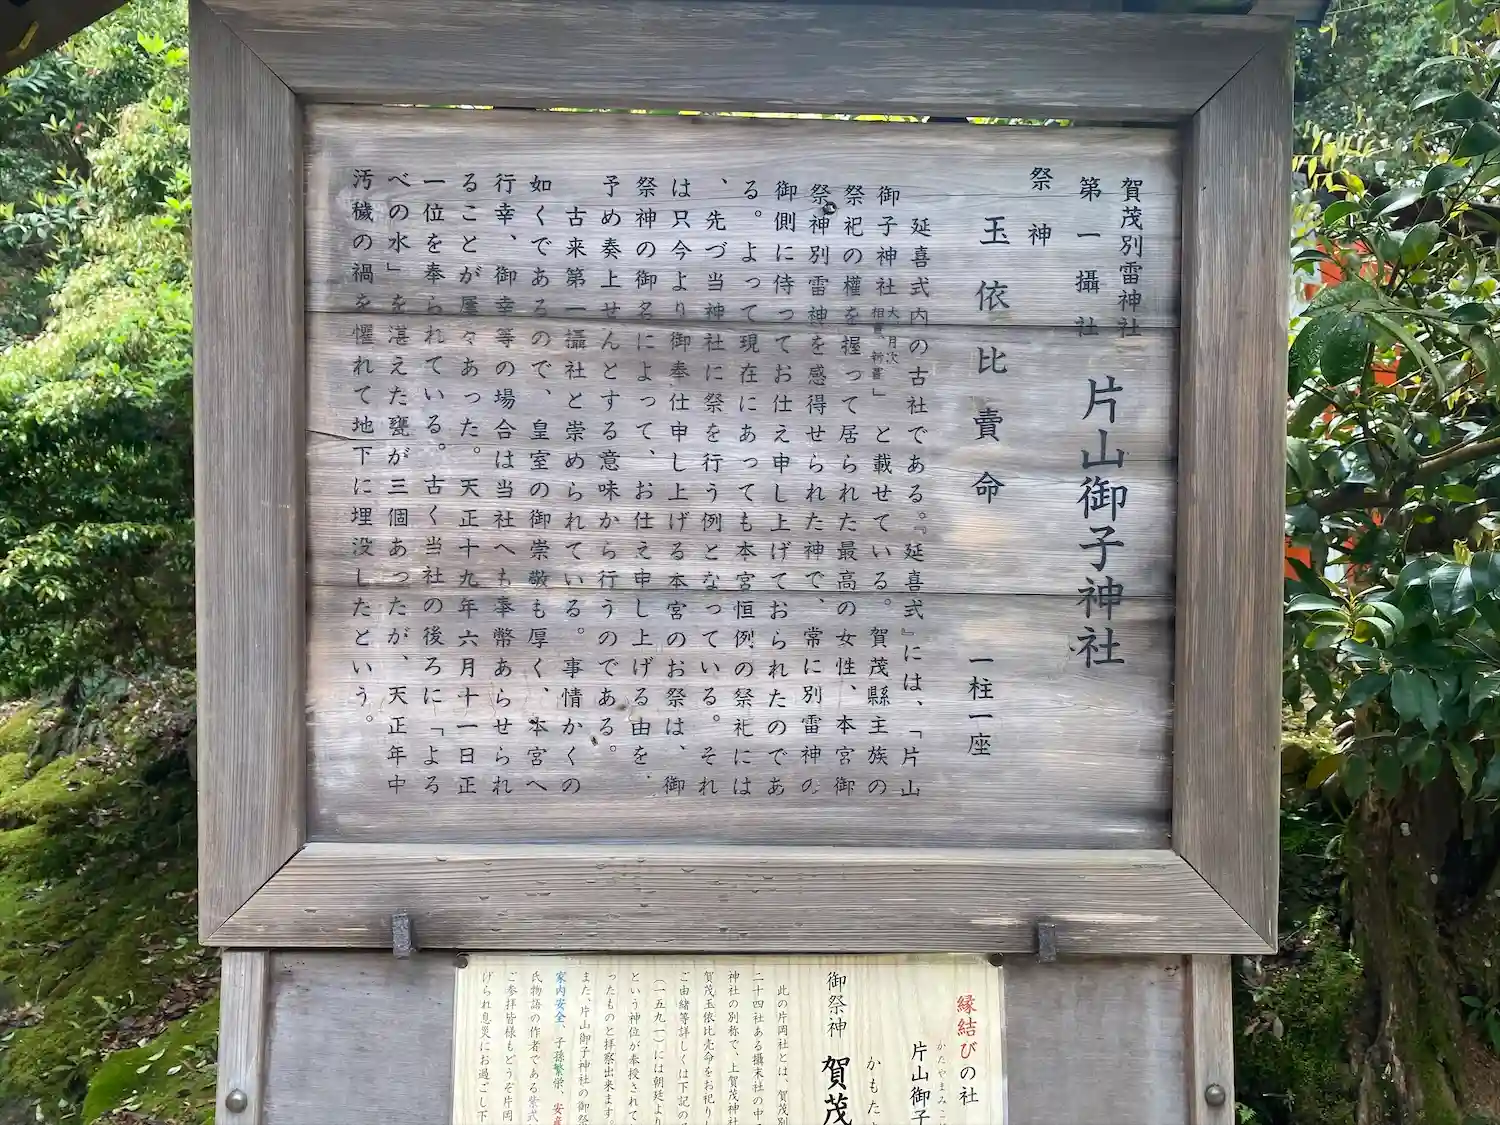 賀茂別雷神社
第一攝社
片山御子神社
祭神
玉依比賣命
一柱一座
延喜式内の古社である。『延喜式』には、「片山
御子神社大、月次相嘗、新嘗」と載せている。賀茂縣主族の
祭祀の權を握って居られた最高の女性、本宮御
祭神別雷神を感得せられた神で、常に別雷神の
御側に侍ってお仕え申し上げておられたのであ
る。よって現在にあっても本宮恒例の祭礼には
、先づ当神社に祭を行う例となっている。それ
は只今より御奉仕申し上げる本宮のお祭は、御
祭神の御名によって、お仕え申し上げる由を、
予め奏上せんとする意味から行うのである。
古来第一攝社と崇められている。事情かくの
如くであるので、皇室の御崇敬も厚く、本宮へ
行幸、御幸等の場合は当社へも奉幣あらせられ
ることが屡々あった。天正十九年六月十一日正
一位を奉られている。古く当社の後ろに「よる
べの水」を湛えた甕が三個あったが、天正年中
汚穢の禍を懼れて地下に埋没したという。
縁結びの社
かたやまみこ
片山御子
かもた
御祭神 賀茂
此の片岡社とは、賀茂別
二十四社ある攝末社の中
神社の別称で、上賀茂神社
賀茂玉依比売命をお祀りし
ご由緒等詳しくは下記の
（一五九一）には朝廷より
という神位が奉授されて
ったものと拝察出来ます。
また、片山御子神社の御祭
家内安全、子孫繁栄、安産
氏物語の作者である紫式
ご参拝皆様もどうぞ片岡
げられ息災にお過ごし下